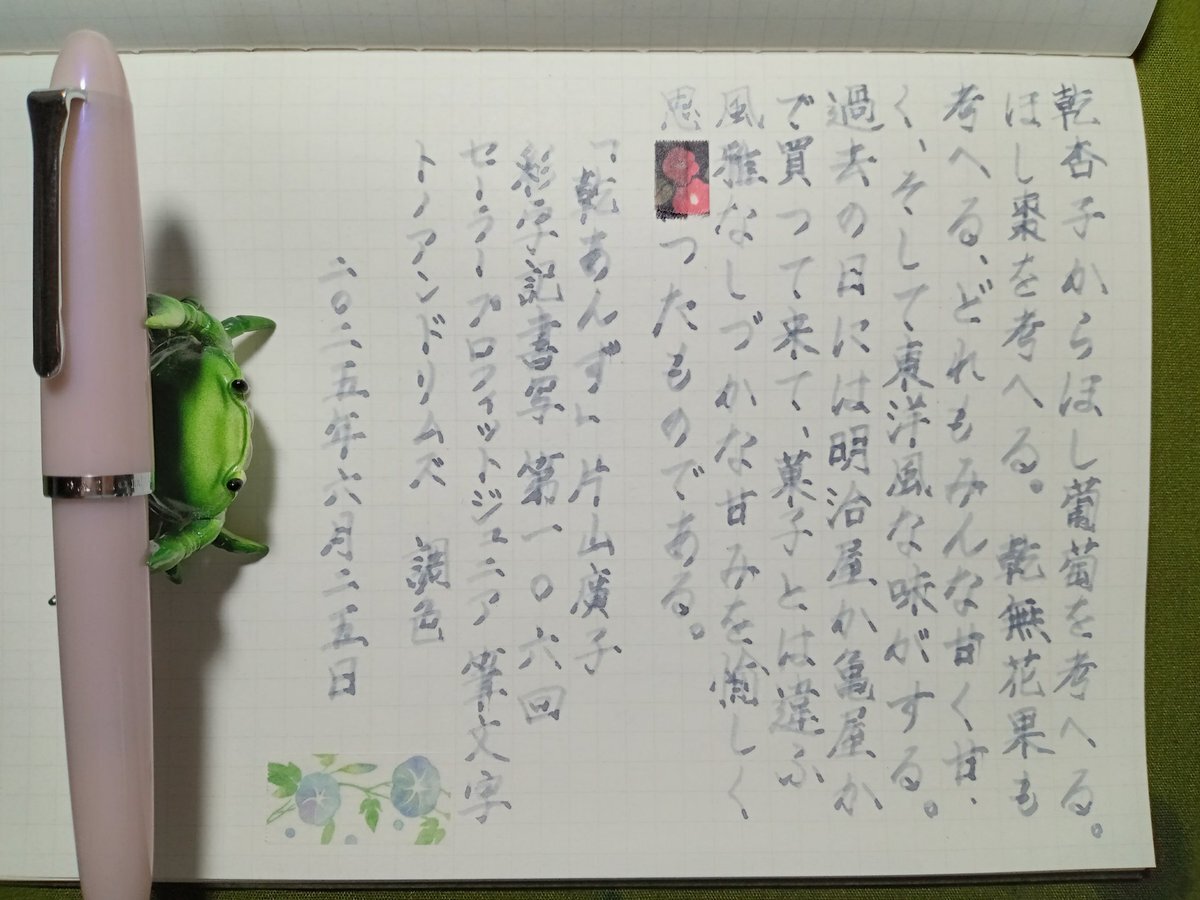 乾杏子からほし葡萄を考へる。
ほし棗を考へる。乾無花果も
考へる、どれもみんな甘く甘
く、そして東洋風な味がする。
過去の日には明治屋か亀屋か
で買つて来て、菓子とは違ふ
風雅なしづかな甘みを愉しく
思つたものである。
「乾あんず」片山廣子
彩字記書写 第一〇六回
セーラープロフィットジュニア 筆文字
トノアンドリムズ 調色
二〇二五年六月二五日